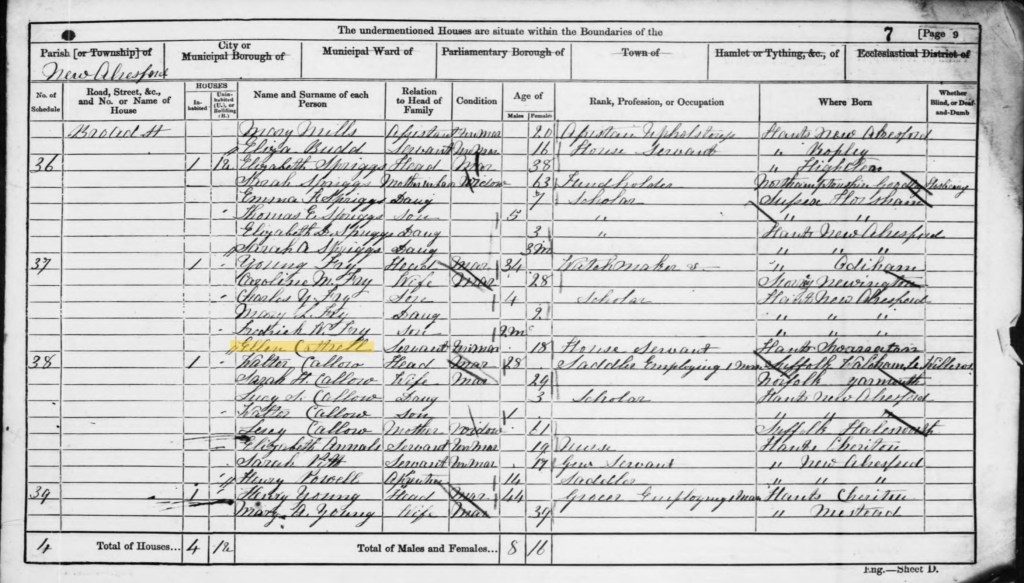 The undermentioned Houses are situate within the Boundaries of the 7 [Page 9
Parish [or Township] of City or Municipal Borough of Municipal Ward of Parliamentary Borough of Town of Hamlet or Tything, &c., of Ecclesiastical District of
New Alresford
No. of Schedule Road, Street, &c., and No. or Name of House HOUSES Inhabited Uninhabited (U.), or Building (B.) Name and Surname of each Person Relation to Head of Family Condition Age of Males Females Rank, Profession, or Occupation Where Born Whether Blind, or Deaf-and-Dumb
Broad St Mary Mills Unmar 20 Hants New Alresford
Eliza Budd Servant Unmar 16 House Servant " Ropley
36 1 Elizabeth Spriggs Head Mar 38 "
Sarah Spriggs Mother in law Widow 63 Fundholder Northamptonshire
Emma Spriggs Daug 7 Scholar Sussex Horsham
Thomas E Spriggs Son 5 " " "
Elizabeth Spriggs Daug 3 " Hants New Alresford
Sarah A Spriggs Daug 3m " "
37 1 Young Fry Head Mar 34 Watchmaker " Odiham
Caroline M Fry Wife Mar 28 Newington
Charles Y Fry Son 4 Scholar Hants New Alresford
Mary L Fry Daug 2 " "
Fredrick W Fry Son 2m " "
Ellen Cottrell Servant Unmar 18 House Servant Hants
38 1 Walter Callow Head Mar 28 Saddler Employing 1 man Suffolk
Sarah H Callow Wife Mar 29 Norfolk Yarmouth
Lucy S Callow Daug 3 Scholar Hants New Alresford
Walter Callow Son 1 " "
Lucy Callow Mother Widow Suffolk
Elizabeth Servant Unmar 19 Nurse Hants Cheriton
Sarah Servant Unmar 17 Gen Servant " New Alresford
Henry 14 Saddler " "
39 1 Henry Young Head Mar 44 Grocer Employing 1 Man Hants Cheriton
Mary A Young Wife Mar 39 "
4 Total of Houses... 4 Total of Males and Females... 8 16
Eng.—Sheet D.